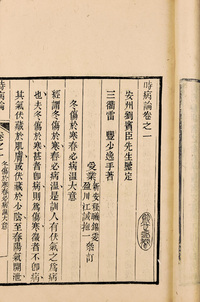 時病論卷之一
安州劉賓臣先生鑒定
三衢雷 豐少逸手著
受業
盈川江誠抱一
參訂
冬傷於寒春必病溫大意
經謂冬傷於寒春必病溫是訓人有伏氣之爲病
也夫冬傷於寒甚者即病則爲傷寒微者不即病
其氣伏藏於肌膚或伏藏於少陰至春陽氣開泄
時病論
卷之一 冬傷於寒春必病溫大意